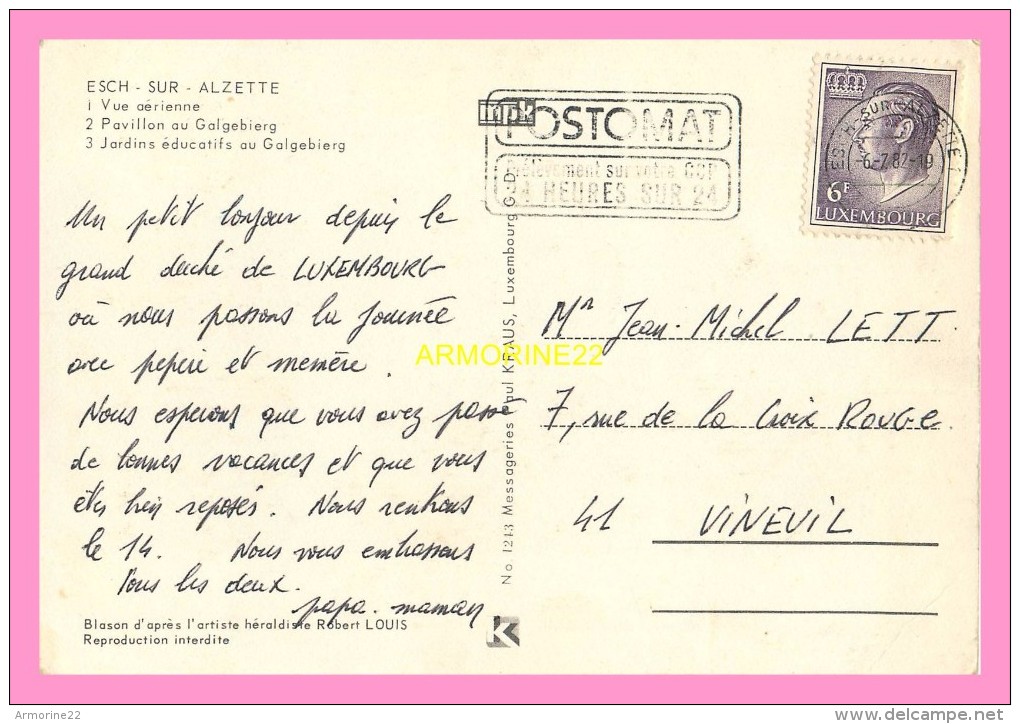 ESCH - SUR - ALZETTE
1 Vue aérienne
2 Pavillon au Galgebierg
3 Jardins éducatifs au Galgebierg
mpk
POSTOMAT
Prélèvement sur votre CCP
24 HEURES SUR 24
ESCH-SUR-ALZETTE 1
-6.-7.82-19
6F
LUXEMBOURG
Un petit bonjour depuis le
grand duché de LUXEMBOURG
où nous passons la journée
avec pepere et memère.
Nous esperons que vous avez passé
de bonnes vacances et que vous
êtes bien reposés. Nous rentrons
le 14. Nous vous embrassons
Tous les deux.
papa - maman
Blason d'après l'artiste héraldiste Robert LOUIS
Reproduction interdite
No 1213 Messageries Paul KRAUS, Luxembourg G-D
K
Mr Jean-Michel LETT.
7, rue de la Croix Rouge
41 VINEUIL
ARMORINE22
Armorine22
www.delcampe.net